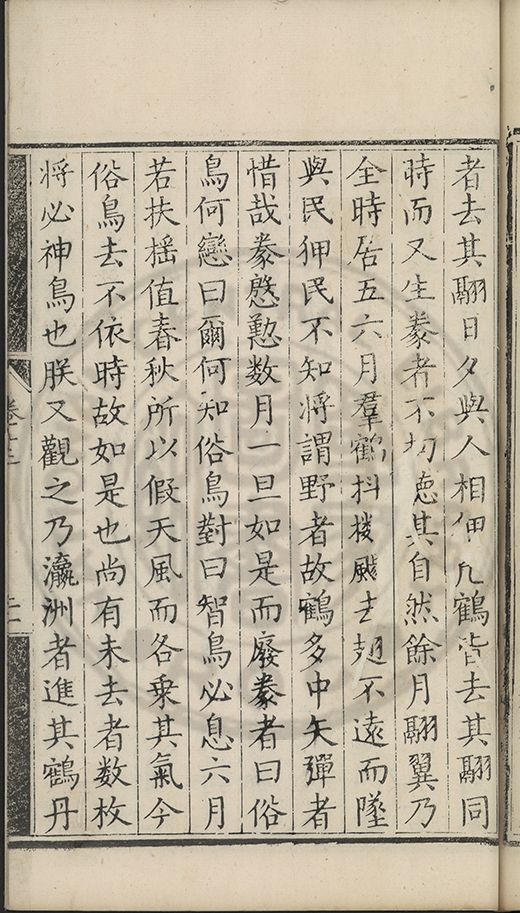 者去其翮日夕與人相狎凡鶴皆去其翮同
時而又生豢者不切德其自然餘月翮翼乃
全時居五六月羣鶴抖擻颺去翅不遠而墜
與民狎民不知將謂野者故鶴多中矢彈者
惜哉豢慇懃数月一旦如是而廢豢者曰俗
鳥何戀曰爾何知俗鳥對曰智鳥必息六月
若扶榣值春秋所以假天風而各乗其氣今
俗鳥去不依時故如是也尚有未去者数枚
将必神鳥也朕又觀之乃瀛洲者進其鶴丹
卷十三